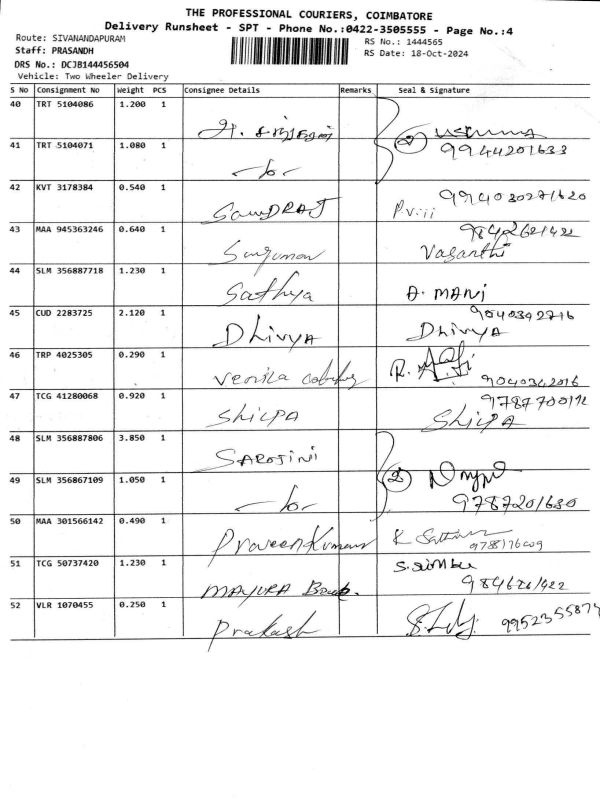 THE PROFESSIONAL COURIERS, COIMBATORE
Delivery Runsheet - SPT - Phone No.:0422-3505555 - Page No.:4
Route: SIVANANDAPURAM
RS No.: 1444565
Staff: PRASANDH
RS Date: 18-Oct-2024
DRS No.: DCJB144456504
Vehicle: Two Wheeler Delivery
S No Consignment No Weight PCS Consignee Details Remarks Seal & Signature
40 TRT 5104086 1.200 1 2
41 TRT 5104071 1.080 1 -/o- 9944201633
42 KVT 3178384 0.540 1 994030271620
43 MAA 945363246 0.640 1 Vasanthi
44 SLM 356887718 1.230 1 Sathya A. MANI
45 CUD 2283725 2.120 1 DhivyA DhivyA 9040342716
46 TRP 4025305 0.290 1 9040342016
47 TCG 41280068 0.920 1 ShilpA ShilpA
48 SLM 356887806 3.850 1 SAROJINI 2
49 SLM 356867109 1.050 1 -/o- 9787201630
50 MAA 301566142 0.490 1 Praveen Kumar
51 TCG 50737420 1.230 1 MAYURA
52 VLR 1070455 0.250 1 Prakash